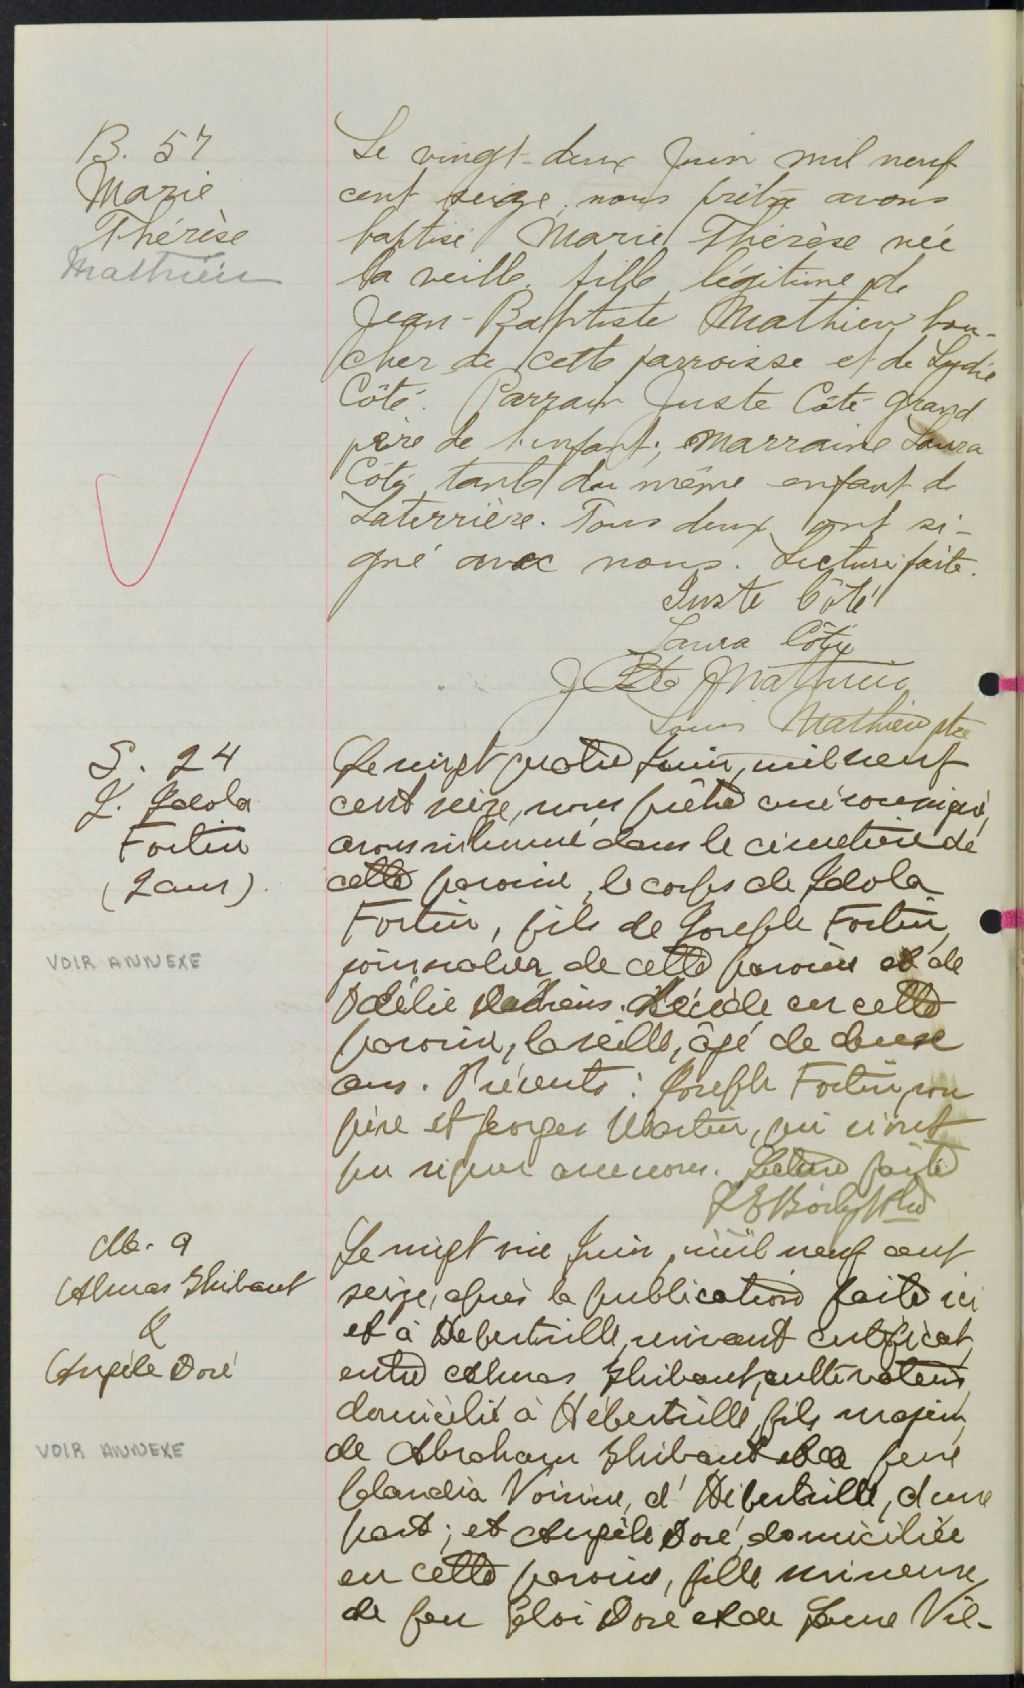 B. 57
Marie
Thérèse
Mathieu
Le vingt-deux Juin mil neuf
cent seize, nous prêtre avons
baptisé Marie Thérèse née
la veille, fille légitime de
Jean-Baptiste Mathieu bou-
cher de cette parroisse et de Lydie
Côté. Parrain Juste Côté grand
père de l'enfant; marraine Laura
Côté, tante du même enfant de
Laterrière. Tous deux ont si-
gné avec nous. Lecture faite.
Juste Côté
Laura Côté
J Bte Mathieu
Louis Mathieu ptre
S. 24
J. Idola
Fortin
(2 ans).
VOIR ANNEXE
Le vingt quatre Juin, mil neuf
cent seize, nous prêtre curé soussigné,
avons inhumé dans le cimetière de
cette paroisse, le corps de Idola
Fortin, fils de Joseph Fortin,
journalier de cette paroisse et de
Décédé en cette
paroisse, la veille, âgé de deux
ans. Présents: Joseph Fortin, son
père et Georges Martin, qui n'ont
pu signer avec nous. Lecture faite
M. 9
Almas Thibault
&
Angèle Doré
VOIR ANNEXE
Le vingt six Juin, mil neuf cent
seize, après la publication faite ici
et à Hébertville, suivant certificat,
entre Almas Thibault, cultivateur,
domicilié à Hébertville, fils majeur,
de Abraham Thibault et de feue
Claudia Voisine, d'Hébertville, d'une
part; et Angèle Doré, domiciliée
en cette paroisse, fille mineure,
de feu Eloi Doré et de Vil-